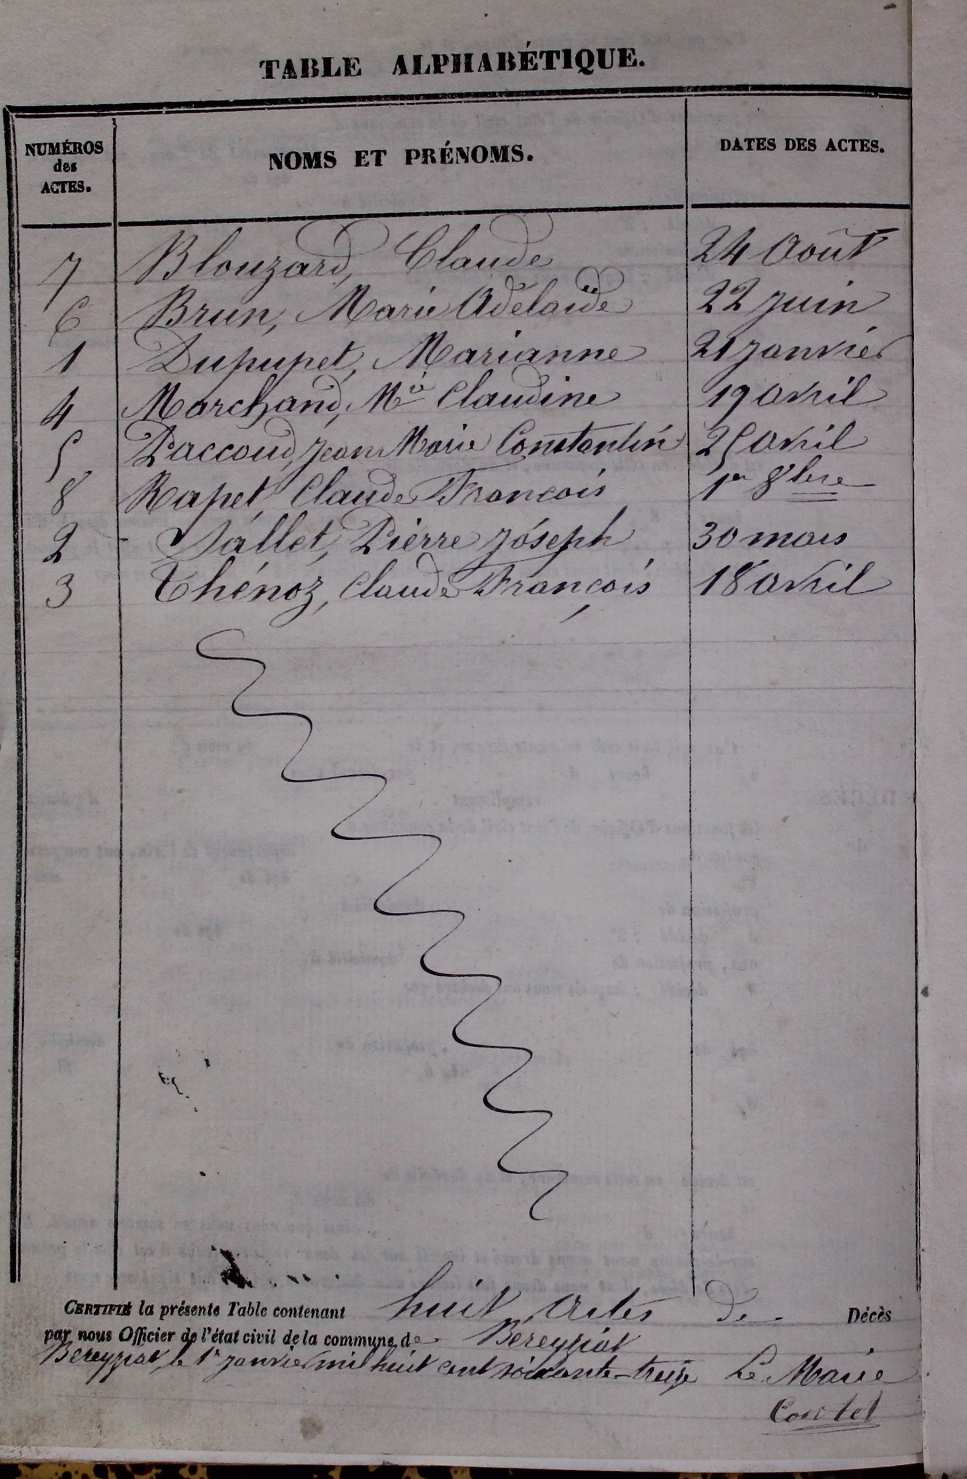 TABLE ALPHABÉTIQUE.
NUMÉROS des ACTES. NOMS ET PRÉNOMS. DATES DES ACTES.
7 Blouzard, Claude 24 Août
6 Brun, Marie Adélaïde 22 juin
1 Dupupet, Marianne 21 janvier
4 Marchand, Mie Claudine 19 avril
5 Paccoud, Jean Marie Constantin 25 avril
8 Rapet, Claude François 1er 8bre
2 Sallet, Pierre Joseph 30 mars
3 Thénoz, Claude François 18 avril
CERTIFIÉ la présente Table contenant huit Actes de Décès
par nous Officier de l'état civil de la commune de Béreyziat
Béreyziat, le 1er janvier mil huit cent soixante-treize Le Maire